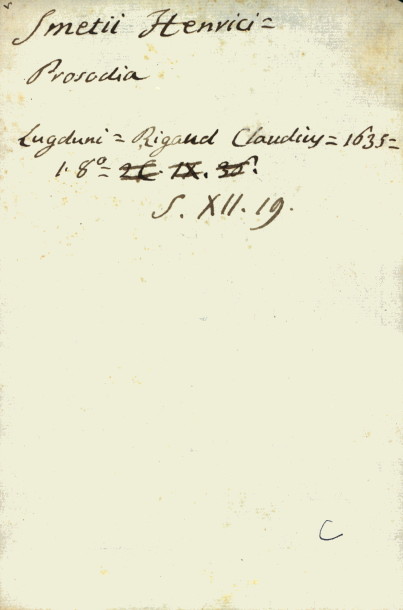 Smetii Henrici =
Prosodia
Lugduni = Rigaud Claudius = 1635 =
1. 8° = IX. 36.
S. XII. 19.
C